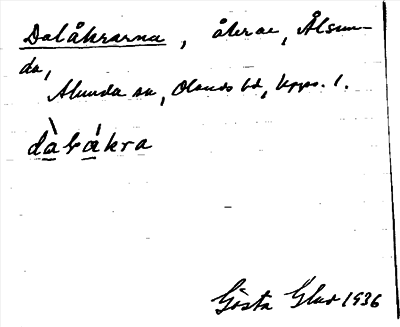 Dalåkrarna, åkrar, Ålsun-
da,
Alunda sn, Olands hd, Upps. l.
dàlákra
Gösta 1936